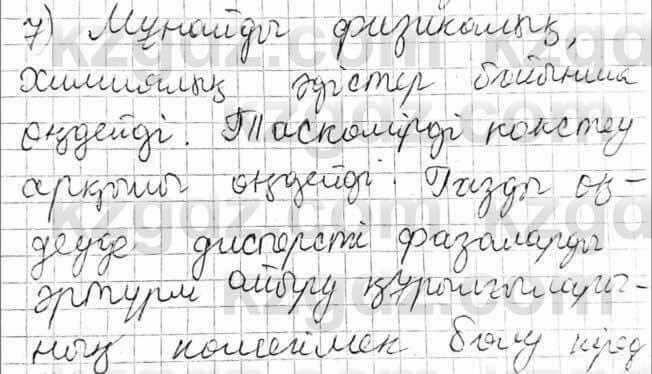 7) Мұнайды физикалық,
химиялық әдістер бойынша
өңдейді. Таскөмірді кокстеу
арқылы өңдейді. Газды өң-
деуде дисперсті фазаларды
әртүрлі айыру құрылғылары-
ның көмегімен бөлу кіред